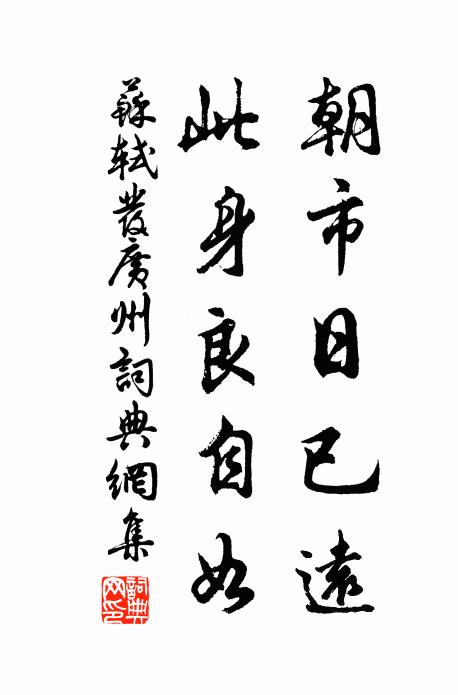 朝市日已遠
此身良自如
蘇軾發廣州詞典網集
詞典
网印